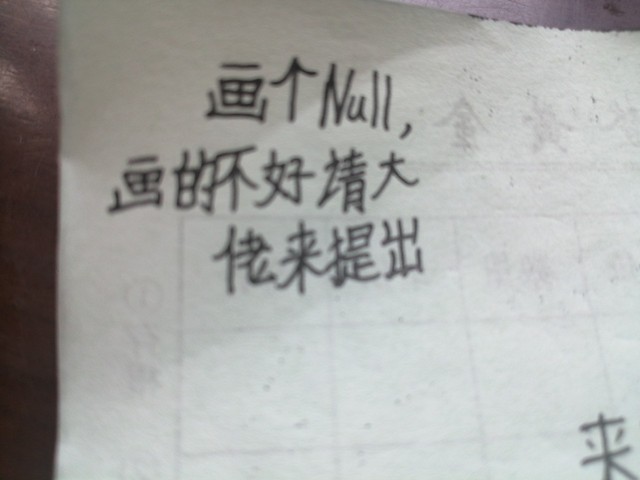 画个Null,
画的不好请大
佬来提出
来